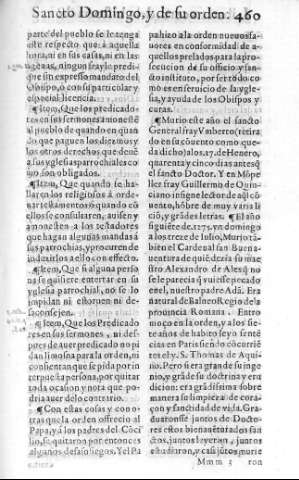 Sancto Domingo, y de su orden. 460
parte del pueblo se le tenga
este respecto que à aquella
hora, ni en sus casas, ni en las
agenas, ningun frayle predique
sin expresso mandato del
Obispo, ò con su particular y
especial licencia.
¶ Item, Que los predicadores
en sus sermones amonesté
al pueblo de quando en quando
que paguen los diezmos y
los otros derechos que deuē
a sus yglesias parrochiales como
son obligados.
¶ Item, Que quando se hallaren
los religiosos à ordenar
testamentos, ò quando cō
ellos se consultaren, auisen y
amonesten a los testadores
que hagan algunas mandas à
sus parrochias, y procuren de
induzirlos a ello con effecto.
¶ Item, Que si alguna persona
quisiere enterrar en su
yglesia parrochial, no se lo
impidan ni estoruen ni desconsejen.
¶ Item, Que los Predicadores
en sus sermones, ni despues
de auer predicado no pidan
limosna para la orden, ni
consientan que se pida por interpuesta
persona, por quitar
toda ocasion y nota que podria
auer de lo contrario.
¶ Con estas cosas y con otras
que la orden offrecio al
Papa, y à los padres del Cōcilio,
se quitaron por entonces
algunos desasosiegos. Y el Papa
hizo ala orden nueuos fauores
en conformidad de aquellos
prelados para la prosecucion
de su officio y sancto
instituto, por ser todo como
es en seruicio de la yglesia,
y ayuda de los Obispos y
curas.
¶ Murio este año el sancto
General fray Vmberto (retirado
en su conuento como queda
dicho) a los. 17. de Henero,
quarenta y cinco dias antes q̄
el sancto Doctor. Y en Mōpeller
fray Guillermo de Quinciano
insigne lector de aquel
cōuento, hōbre de muy varia licio,
y grādes letras. ¶ El año
siguiēte de. 1275. vn domingo
a los treze de Iulio, Murio tābien
el Cardenal san Buenauentura
de quiē dezia su maestro
Alexandro de Ales q̄ no
se le parecia q̄ vuiesse peccado
en el, nuestro padre Adā. Era
natural de Balneo Regio de la
prouincia Romana. Entro
moço en la orden, y a los siete
años de habito leyo sentēcias
en Paris siendo cōcurriētes
el y. S. Thomas de Aquino.
Pero si era grande su ingenio,
y grāde su doctrina y erudicion:
era grādissima sobre
manera su limpieza de coraçon
y sanctidad de vida. Graduaronsse
juntos de Doctores
estos bienauēturados sanctos,
juntos leyeron, y juntos
estudiaron, y casi jūtos murie
Mmm 3 ron